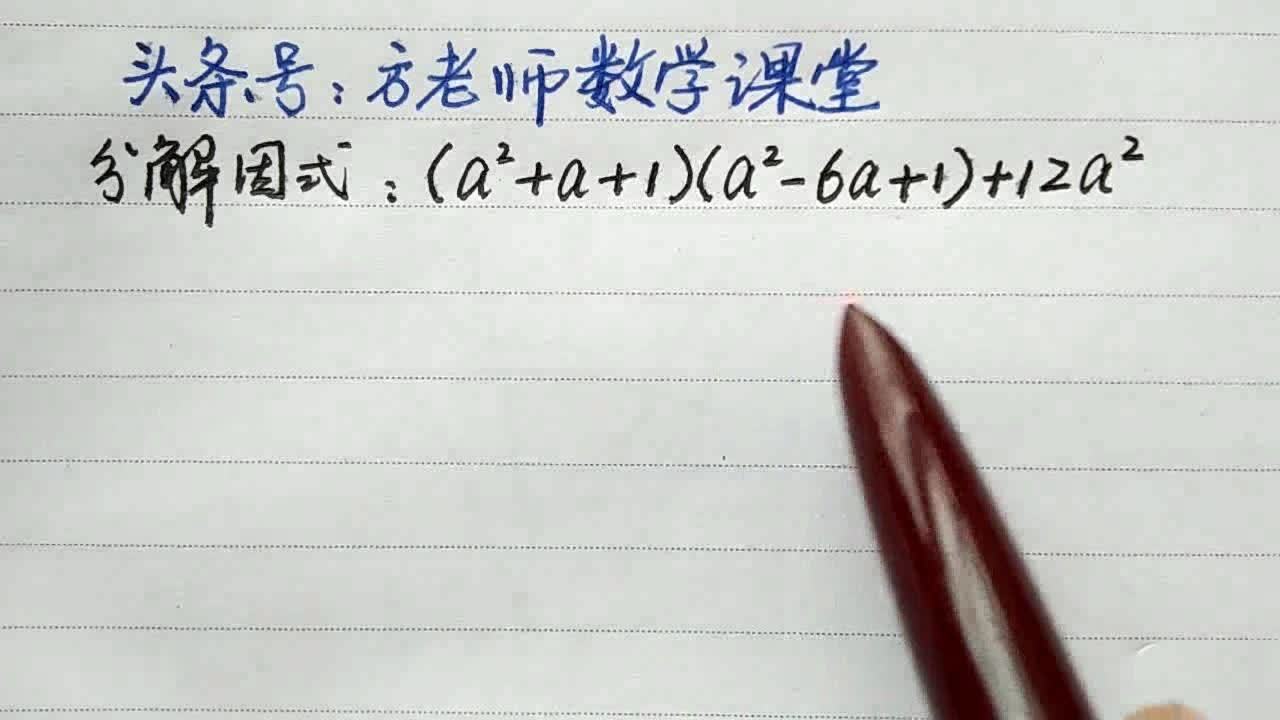 头条号：方老师数学课堂
分解因式：(a²+a+1)(a²-6a+1)+12a²